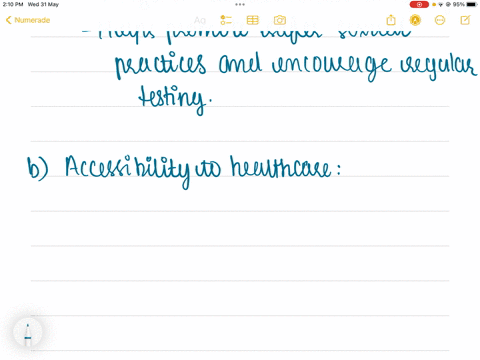 2:10 PM Wed 31 May
95%
Numerade
Aa
- Helps promote safer sexual
practices and encourage regular
testing.
b) Accessibility to healthcare: